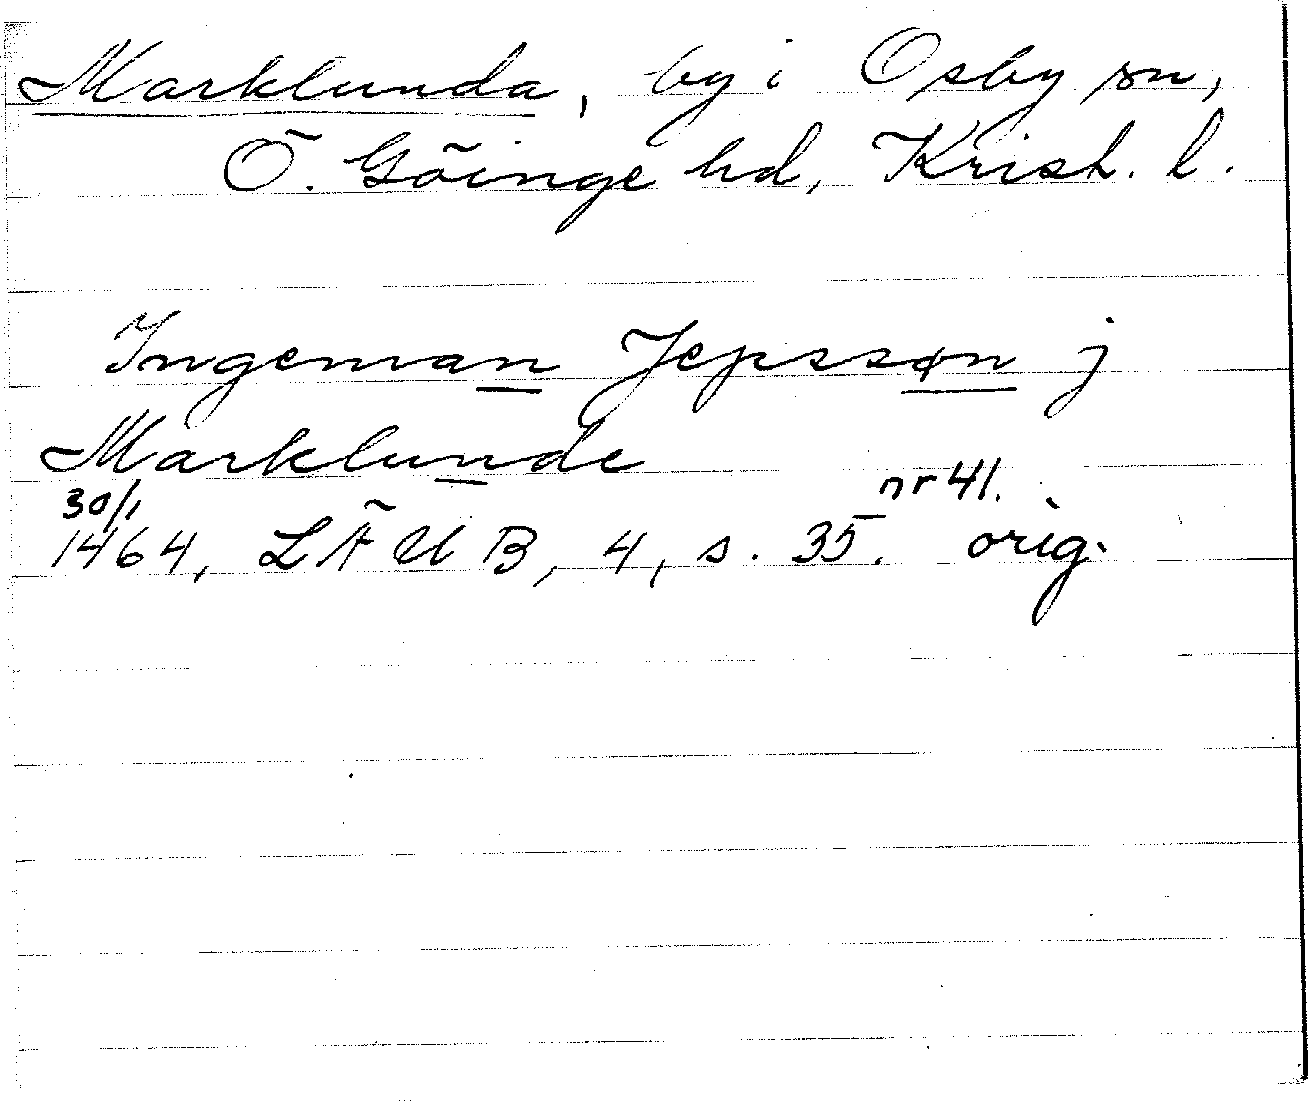 Marklunda, by i Osby sn,
Ö. Göinge hd, Krist. l.
Ingeman Jepssøn j
Marklunde
30/1 nr 41.
1464, LÄUB, 4, s. 35. orig.